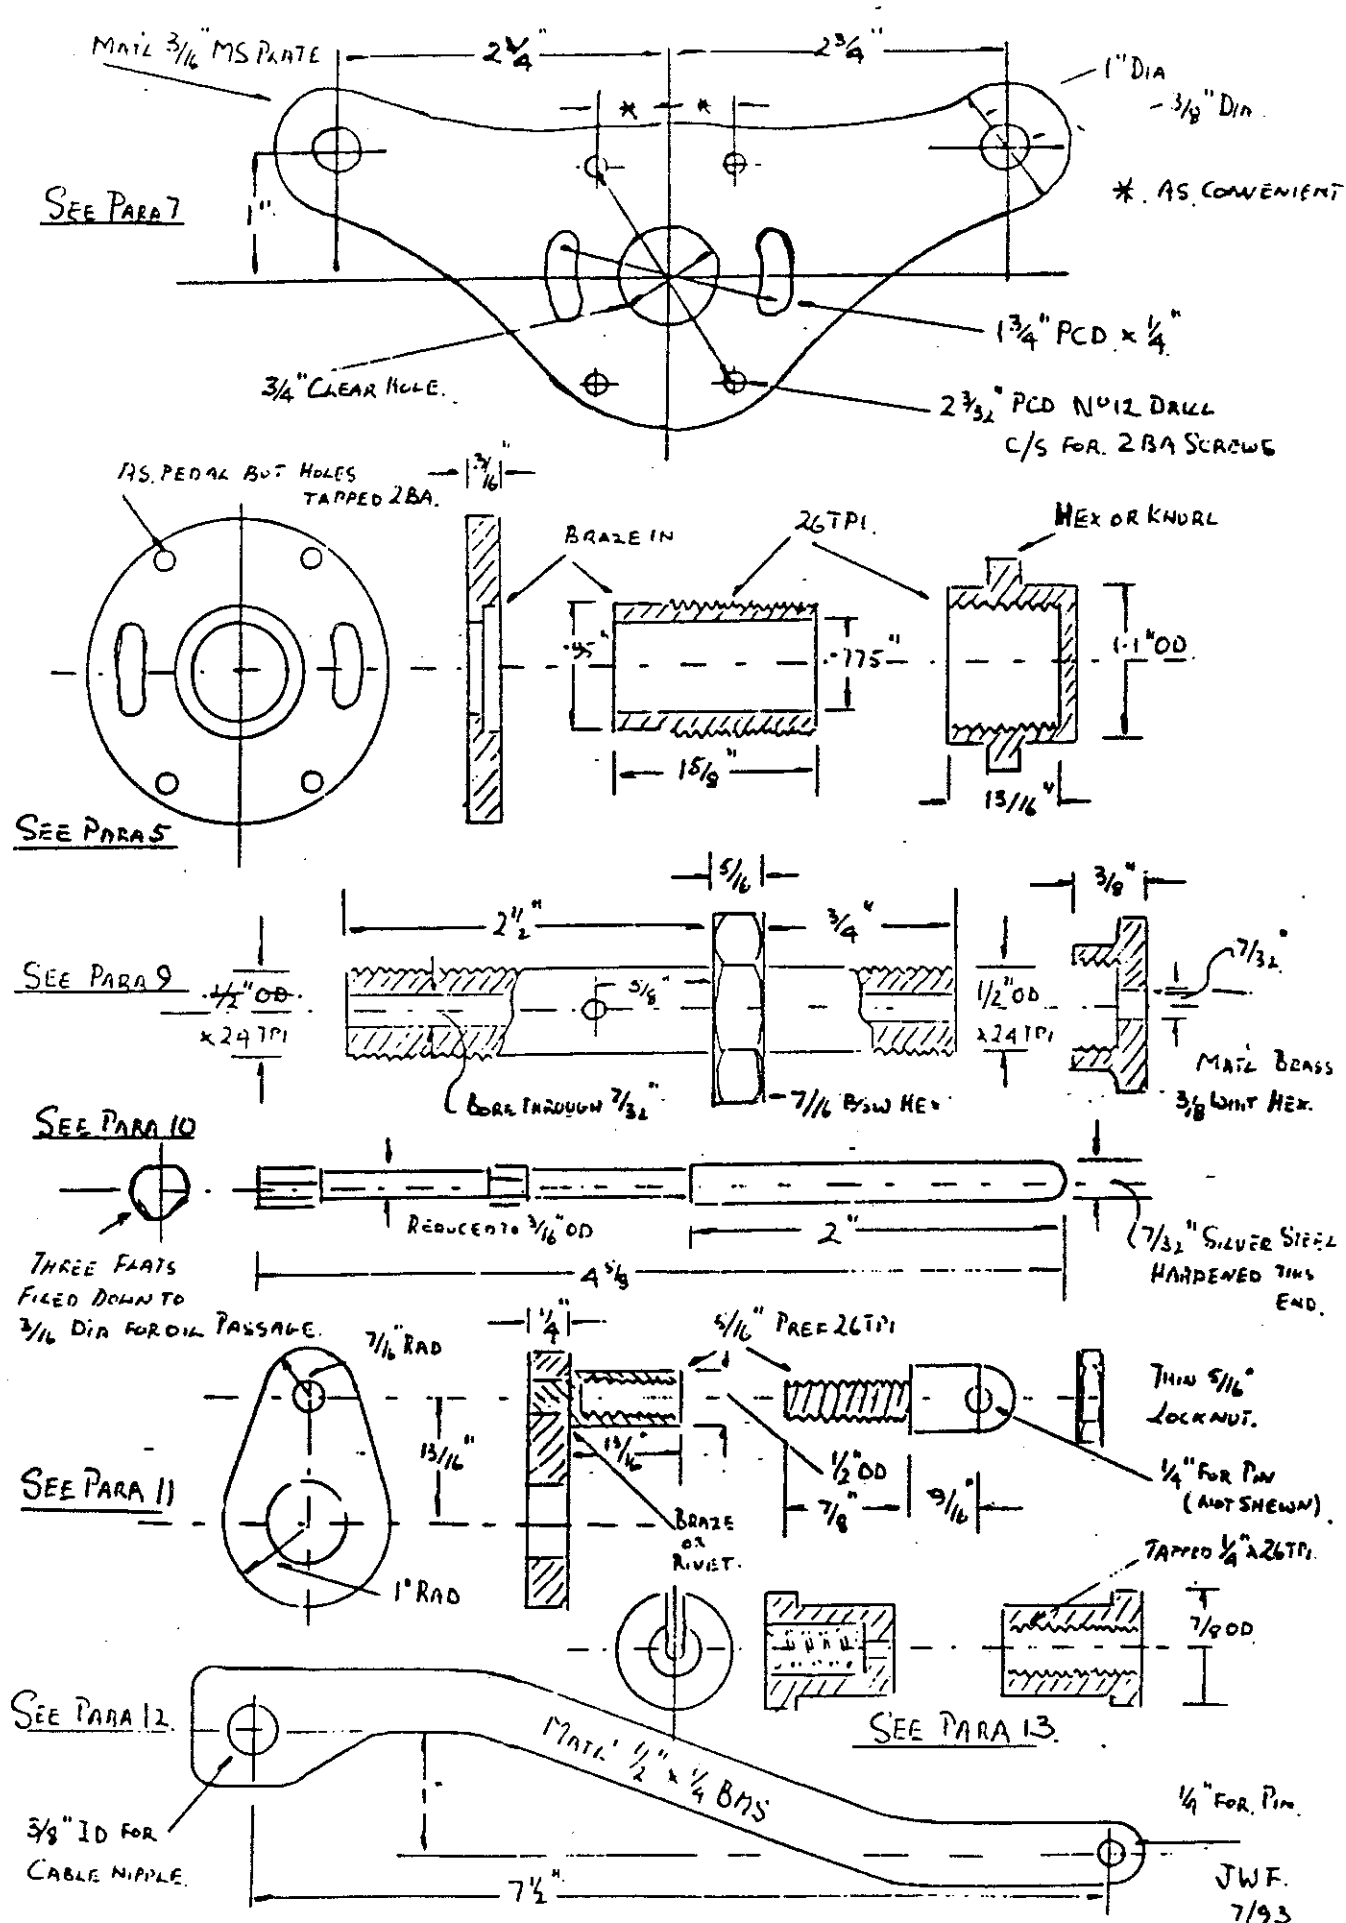 MATL 3/16" MS PLATE
2 3/4"
2 3/4"
1" DIA
3/8" DIA
* *
* AS CONVENIENT
SEE PARA 7
1"
1 3/4" PCD × 1/4"
3/4" CLEAR HOLE.
2 3/32" PCD No 12 DRILL
C/S FOR 2BA SCREWS
AS PEDAL BUT HOLES
TAPPED 2BA.
3/16"
BRAZE IN
26 TPI.
HEX OR KNURL
.95"
.775"
1.1" OD
1 5/8"
13/16"
SEE PARA 5
5/16
3/8"
2 1/2"
3/4"
7/32"
SEE PARA 9
1/2" OD
× 24 TPI
5/8"
1/2" OD
× 24 TPI
MATL BRASS
3/8 WHIT HEX.
BORE THROUGH 7/32"
7/16 BSW HEX
SEE PARA 10
REDUCED TO 3/16" OD
2"
7/32" SILVER STEEL
HARDENED THIS
END.
4 5/8
THREE FLATS
FILED DOWN TO
3/16 DIA FOR OIL PASSAGE.
7/16" RAD
1/4"
5/16" PREF 26 TPI
THIN 5/16"
LOCKNUT.
13/16"
13/16"
1/2" OD
1/4" FOR PIN
(NOT SHEWN).
SEE PARA 11
7/8"
9/16"
BRAZE
OR
RIVET.
1" RAD
TAPPED 1/4" × 26 TPI.
7/8 OD
SEE PARA 12
SEE PARA 13.
MATL' 1/2" × 1/4 BMS
1/4" FOR PIN.
3/8" ID FOR
CABLE NIPPLE.
7 1/2"
JWF.
7/93